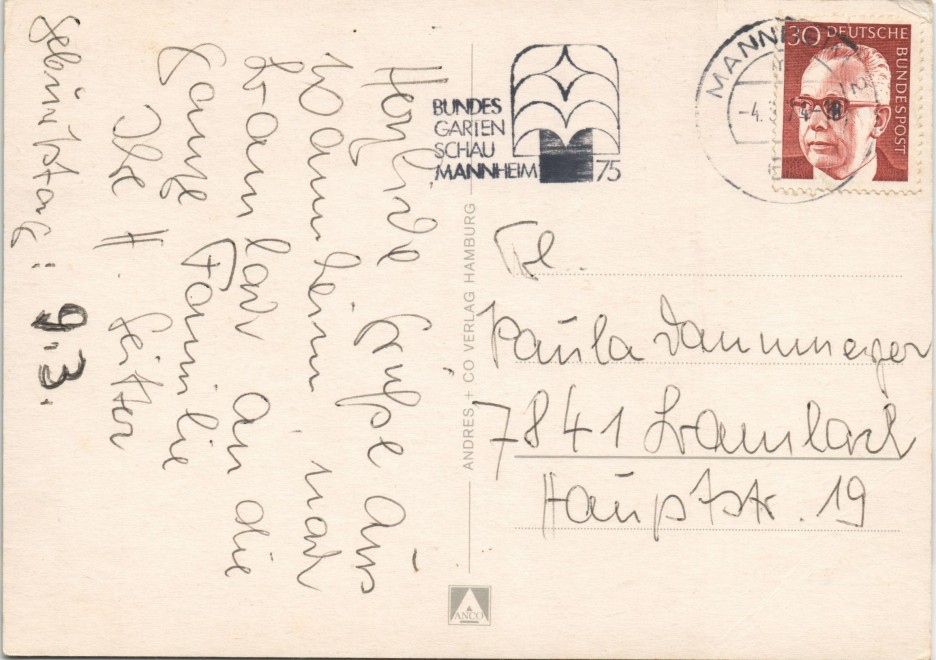 BUNDES
GARTEN
SCHAU
MANNHEIM 75
30 DEUTSCHE BUNDESPOST
Herzliche Grüße aus
Mannheim nach
Bamlach an die
ganze Familie
Ihr H.
Geburtstag: 9.3.
ANDRES + CO VERLAG HAMBURG
Frl.
Paula Dannmeyer
7841 Bamlach
Hauptstr. 19
ANCO